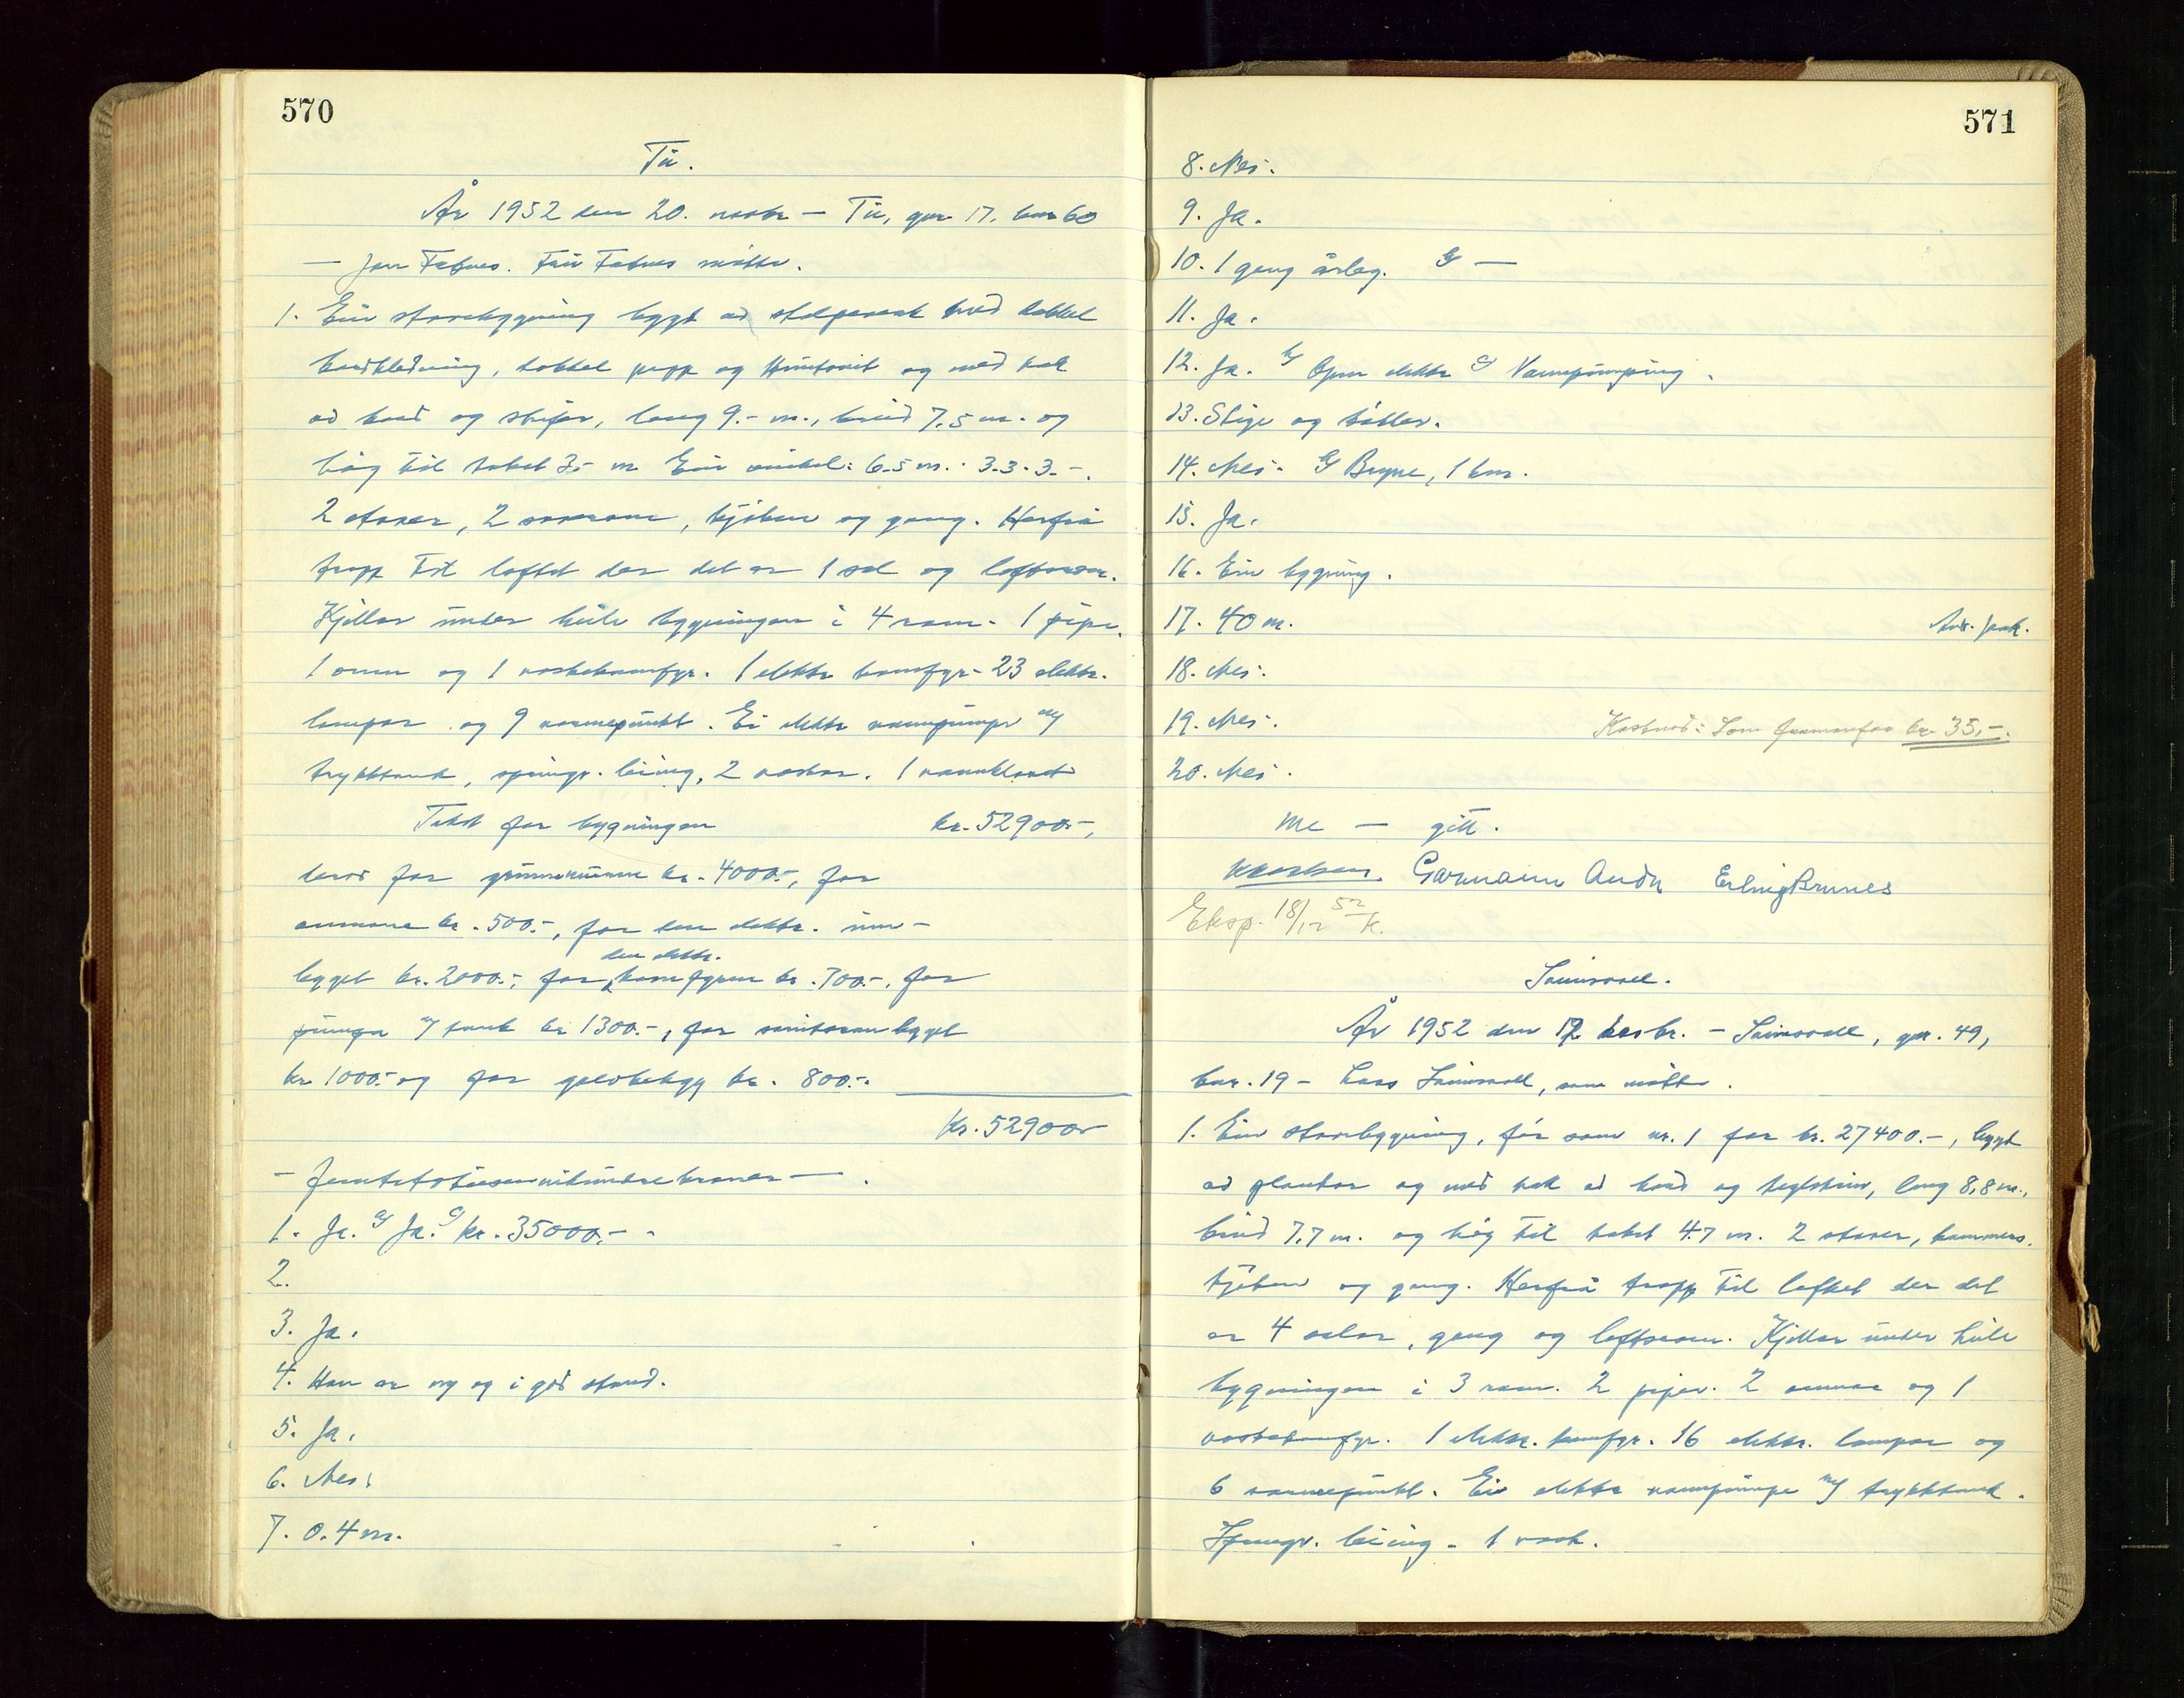 570
Tu.
År 1952 den 20. novbr — Tu, gnr. 17. bnr 60
— Jon Fru møtte.
1. Ein stovebygning bygt av stolpeverk med dobbel
bordkledning, dobbel papp og Huntonit og med tak
av bord og skifer, lang 9.- m., breid 7.5 m. og
høg til taket 3.- m Ein vinkel: 6.5 m. · 3.3 · 3.-.
2 stover, 2 soverom, kjøken og gang. Herfrå
trapp til loftet der det er 1 sal og loftsrom.
Kjellar under heile bygningen i 4 rom. 1 pipe.
1 omn og 1 vaskekomfyr. 1 elektr komfyr. 23 elektr.
lampor og 9 varmepunkt. Ei elektr vannpumpe m/
trykktank, springv. leiing, 2 vaskar. 1 vannklosett
Takst for bygningen kr. 52900.-,
herav for grunnmuren kr. 4000.-, for
omnane kr. 500.-, for den elektr. inn-
legget kr. 2000.-, for den elektr. komfyren kr. 700.-, for
pumpa m/ tank kr 1300.-, for sanitæranlegget
kr 1000.- og for golvbelegg kr. 800.-.
Kr. 52900.-
— femtitotusennihundrekroner — .
1. Ja. b/ Ja. c/ kr. 35000.- .
2.
3. Ja.
4. Han er ny og i god stand.
5. Ja.
6. Nei.
7. 0.4 m.
571
8. Nei.
9. Ja.
10. 1 gang årleg. b/ —
11. Ja.
12. Ja. b/ Open elektr c/ Vannpumping.
13. Stige og bøtter.
14. Nei. b/ Bryne, 1 km.
15. Ja.
16. Ein bygning.
17. 40 m.
18. Nei.
19. Nei. Kostnad: Som framanfor kr. 35,-.
20. Nei.
Me — gitt.
Garmann Erling Brunes
Eksp. 18/12 52 K.
År 1952 den 12 desbr. — gnr. 49,
bnr. 19 — Lars som møtte.
1. Ein stovebygning, før som nr. 1 for kr. 27400.-, bygt
av plankar og med tak av bord og teglstein, lang 8,8 m.,
breid 7,7 m. og høg til taket 4.7 m. 2 stover, kammers.
kjøken og gang. Herfrå trapp til loftet der det
er 4 salar, gang og loftsrom. Kjellar under heile
bygningen i 3 rom. 2 piper. 2 omnar og 1
vaskekomfyr. 1 elektr. komfyr. 16 elektr. lampor og
6 varmepunkt. Ei elektr vannpumpe m/ trykktank.
Springv. leiing. 1 vask.